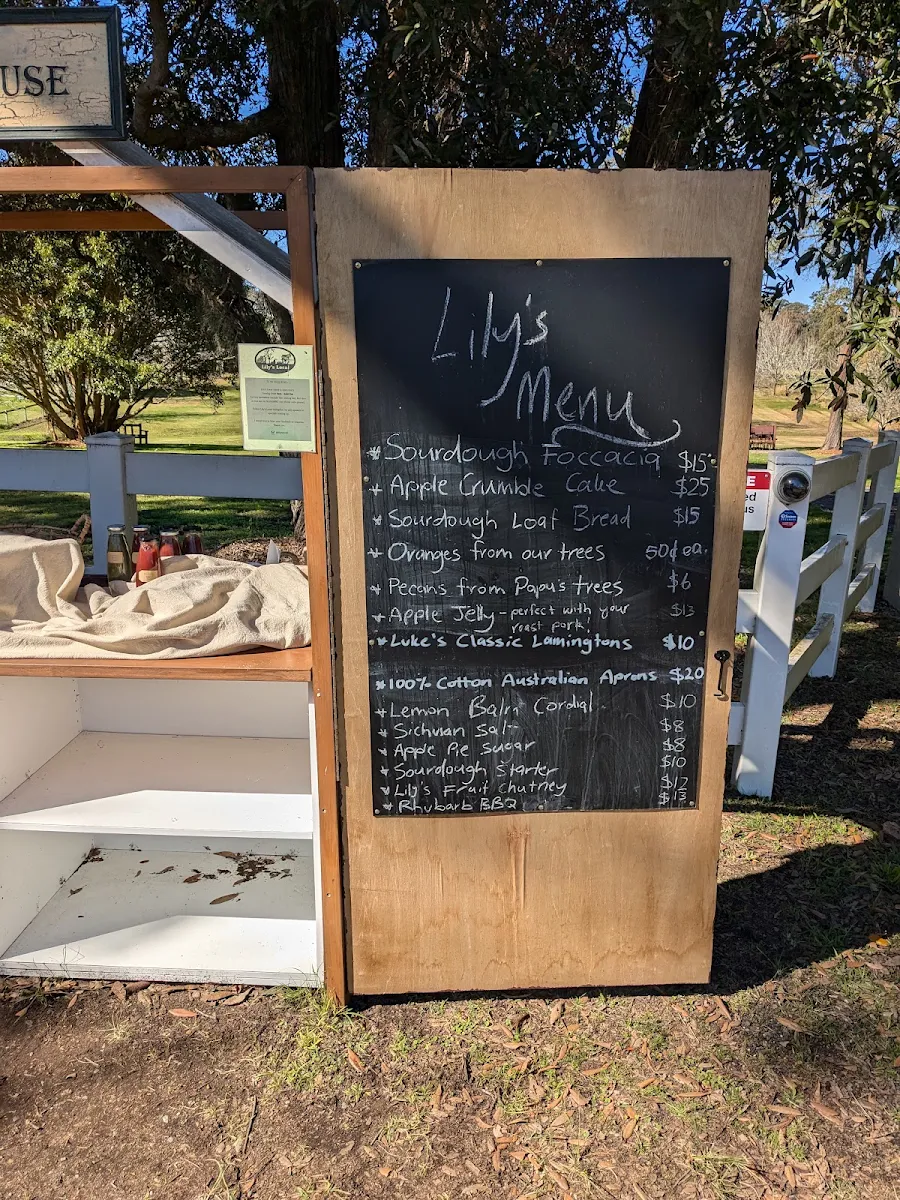 USE
Lily's Local
Lily's
Menu
* Sourdough Foccacia $15
* Apple Crumble Cake $25
* Sourdough Loaf Bread $15
* Oranges from our trees 50¢ ea.
* Pecans from Papu's trees $6
* Apple Jelly - perfect with your $13
roast pork!
* Luke's Classic Lamingtons $10
* 100% Cotton Australian Aprons $20
* Lemon Balm Cordial $10
* Sichuan Salt $8
* Apple Pie Sugar $8
* Sourdough Starter $10
* Lily's Fruit Chutney $12
* Rhubarb BBQ $13
E
ed
us